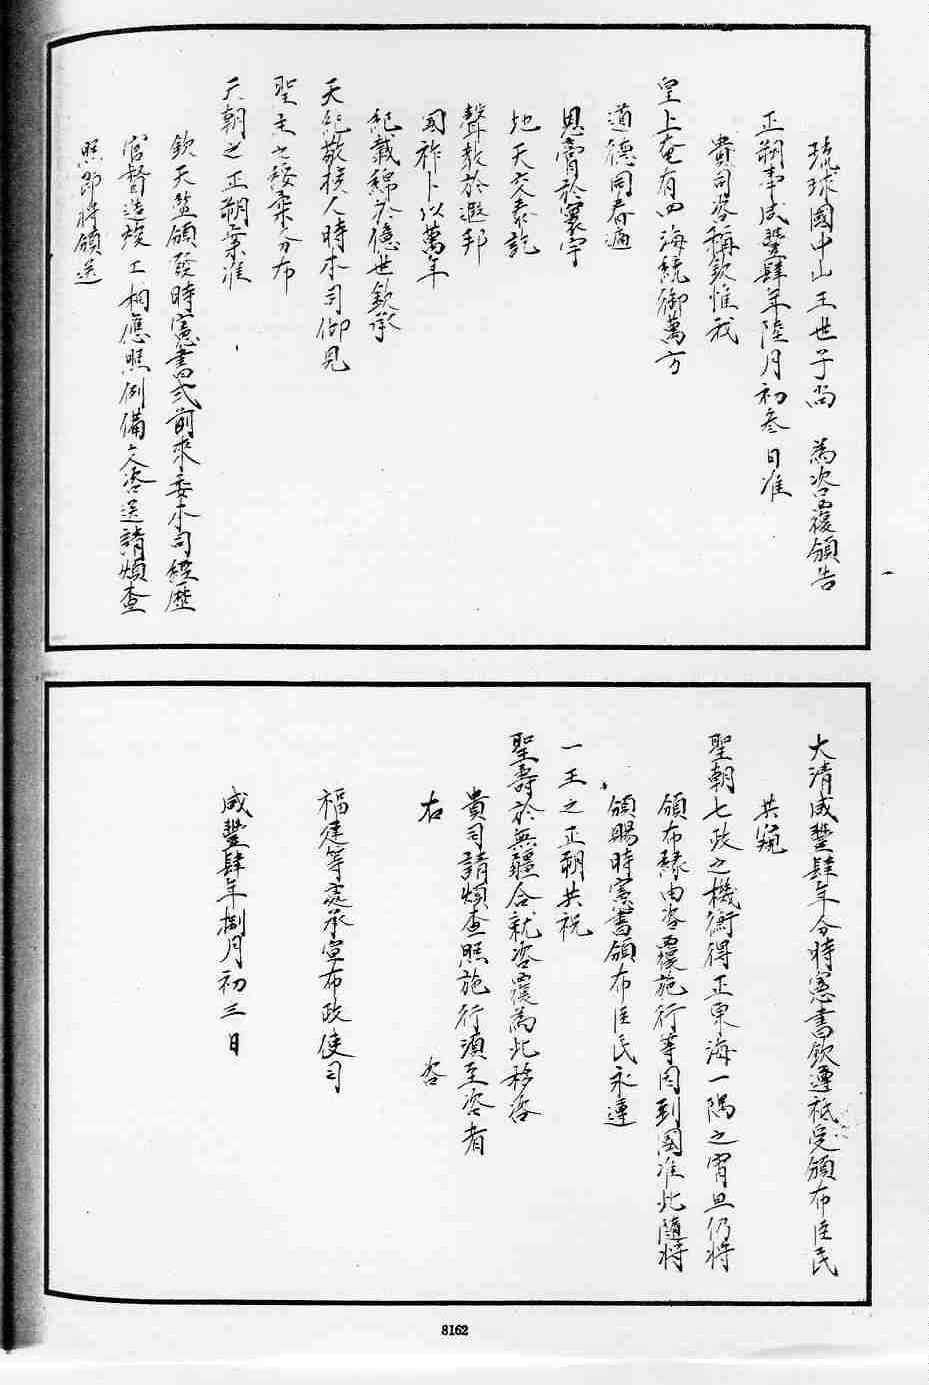 琉球國中山王世子尚　為咨覆頒告
正朔事咸豐肆年陸月初叁日准
貴司咨稱欽惟我
皇上奄有四海統御萬方
道德同春遍
恩膏於寰宇
地天交泰訖
聲教於遐邦
國祚卜以萬年
紀載綿於億世欽承
天紀敬授人時本司仰見
聖主之綏柔分布
天朝之正朔案准
欽天監頒發時憲書式前來委本司經歷
官督造竣工相應照例備文咨送請煩查
照即將頒送
大清咸豐肆年分時憲書欽遵祗受頒布臣民
共窺
聖朝七政之機衡得正東海一隅之宵旦仍將
頒布緣由咨覆施行等因到國准此隨將
頒賜時憲書頒布臣民永遵
一王之正朔共祝
聖壽於無疆合就咨覆為此移咨
貴司請煩查照施行須至咨者
右　咨
福建等處承宣布政使司
咸豐肆年捌月初三日
8162